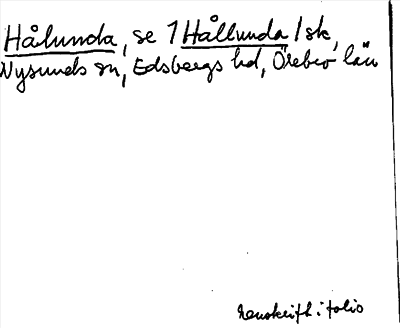 Hålunda, se 1 Hållunda /sk,
Nysunds sn, Edsbergs hd, Örebro län
Renskrift i folio